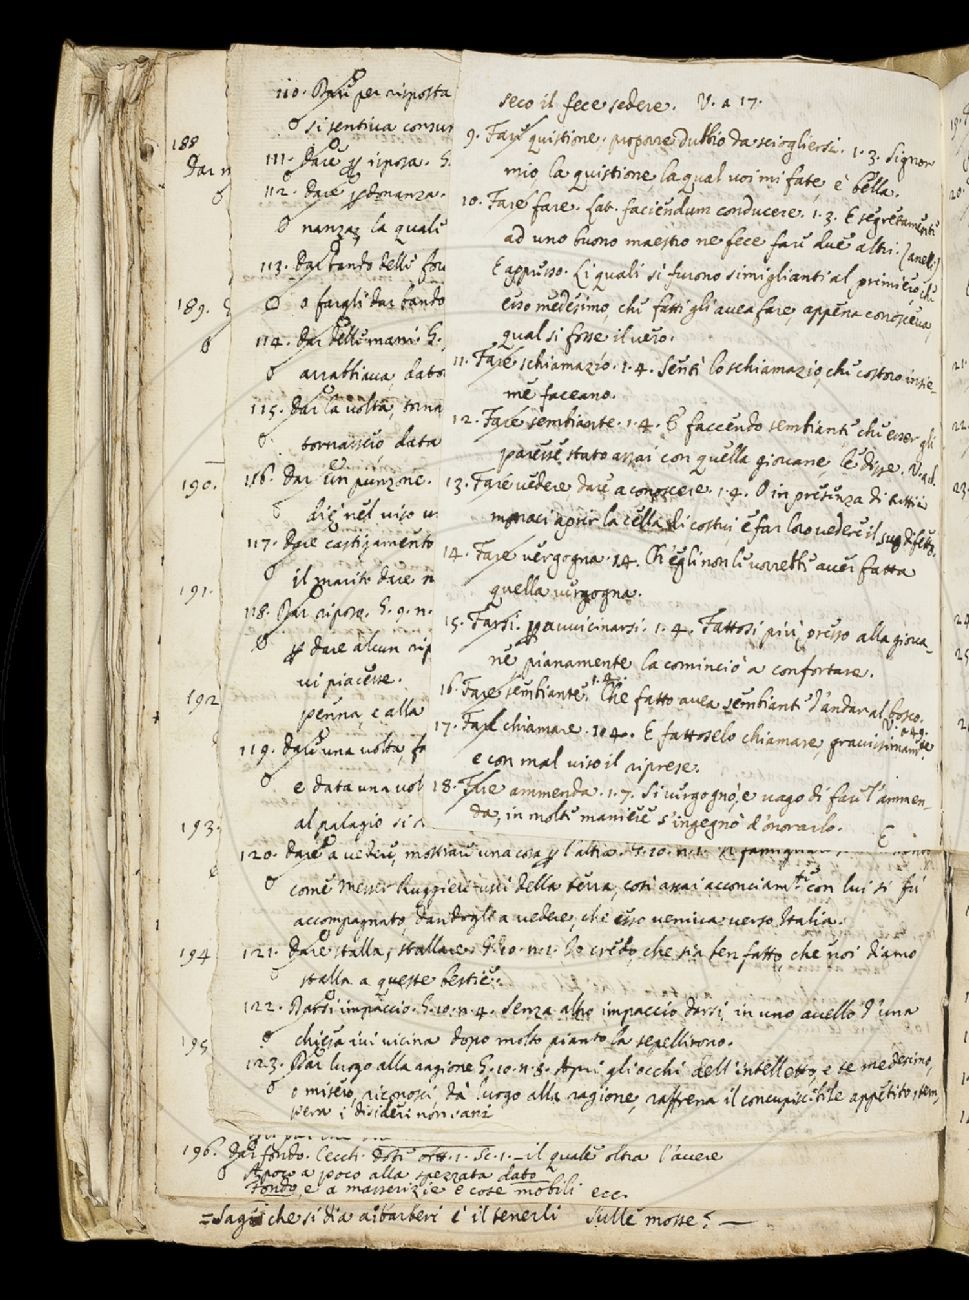 seco il fece sedere. V. a 17.
9. Fare quistione. proporre dubbio da sciogliersi. 1. 3. Signor
mio, la quistione la qual voi mi fate, è bella.
10. Fare fare. Lat. faciendum conducere. 1. 3. E segretamente
ad uno buono maestro ne fece fare due altri. (anelli)
E appresso. Li quali si furono simiglianti al primiero, che
esso medesimo, che fatti gli avea fare, appena conosceva,
qual si fosse il vero.
11. Fare schiamazio. 1. 4. Sentì lo schiamazio, che costoro insie-
me faceano.
12. Fare sembiante. 1. 4. E faccendo sembiante che esser gli
paresse stato assai con quella giovane le disse. V. a d.
13. Fare vedere dare a conoscere. 1. 4. O in presenza di tutti i
monaci aprir la cella di costui, e far loro vedere il suo difetto.
14. Fare vergogna. 1. 4. Ch'egli non le vorrebbe aver fatta
quella vergogna.
15. Farsi. per avvicinarsi. 1. 4. Fattosi più presso alla giova-
ne pianamente la cominciò a confortare.
16. Fare sembiante. 1. 4. Che fatto avea sembiante d'andar al bosco.
V. a 49.
17. Fare chiamare. 1. 4. E fattoselo chiamare, gravissimamte
e con mal viso il riprese.
18. Fare ammenda. 1. 7. Si vergognò, e vago di fare l'ammen-
da, in molte maniere s'ingegnò d'onorarlo.
E
110. Dare per risposta
si sentiva consum
111. Dare per risposa. G.
112. Dare perdonanza.
nanza, la quale
113. Dar bando delle for
o fargli dar bando
114. Dar delle mani. G.
arrabbiava, dato
115. Dar la volta, torna
tornasseio data
116. Dar un punzone.
diè nel viso un
117. Dare castigamento
il marito dare n
118. Dar riposo. G. 9. n.
per dare alcun rip
vi piacesse.
penna, e alla
119. Dare una volta, fa
e data una vol
al palagio si
120. Dare a vedere, mostrare una cosa per l'altra. G. 10. n. 1.
come Messer Ruggieri uscì della terra, così assai acconciamte con lui si fu
accompagnato, dandogli a vedere, che esso veniva verso Italia.
121. Dare stalla, stallare. G. 10. n. 1. Io credo, che sia ben fatto, che noi diamo
stalla a queste bestie.
122. Darsi impaccio. G. 10. n. 4. Senza altro impaccio darsi, in uno avello d'una
chiesa ivi vicina dopo molto pianto la sepellirono.
123. Dar luogo alla ragione G. 10. n. 8. Apri gli occhi dell'intelletto, e te medesimo,
o misero, riconosci, dà luogo alla ragione, raffrena il concupiscibile appetito, tem-
pera i desideri non sani
188
Dar
189.
190.
191.
192
193.
194
195
196. Dar fondo. Cecch. Dote att. 1. sc. 1. — il quale oltra l'avere
A poco a poco alla spezzata dato
Fondo, e a masserizie e cose mobili ecc.
= che si dia a' barberi è il tenerli sulle mosse? —